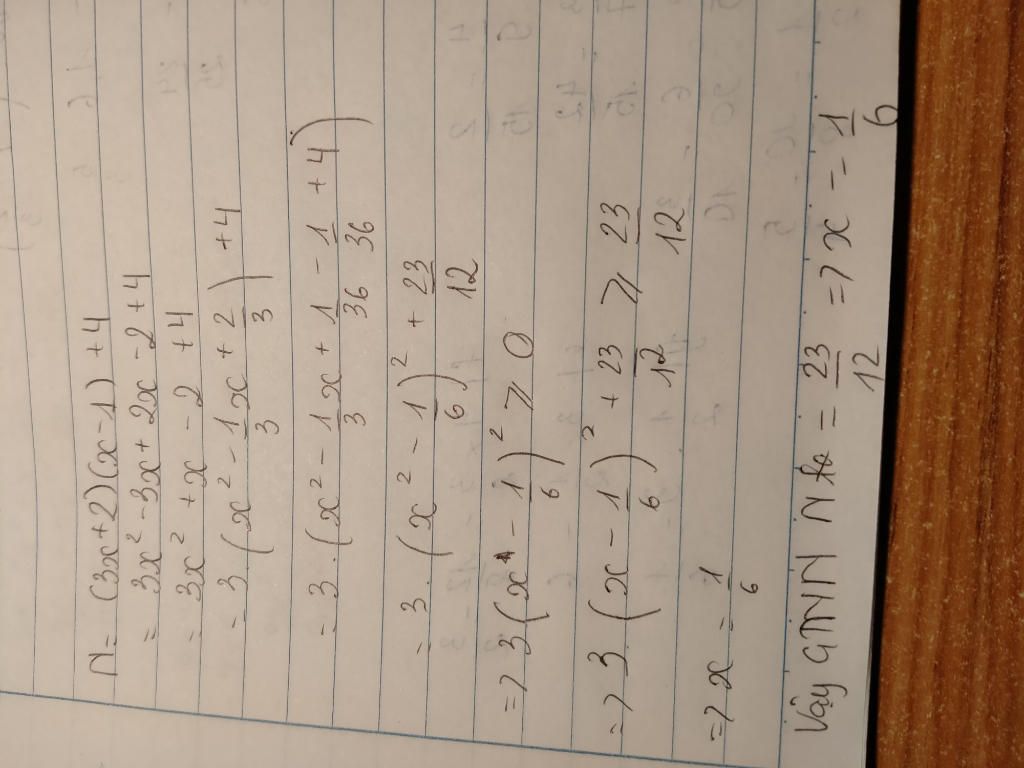 N = (3x+2)(x-1) +4
= 3x² -3x + 2x -2 +4
= 3x² +x -2 +4
= 3 (x² - 1/3 x + 2/3) +4
= 3. (x² - 1/3 x + 1/36 - 1/36 + 4)
= 3. (x² - 1/6)² + 23/12
=> 3(x - 1/6)² ≥ 0
=> 3 (x - 1/6)² + 23/12 ≥ 23/12
=> x = 1/6
Vậy GTNN N là = 23/12 => x = 1/6